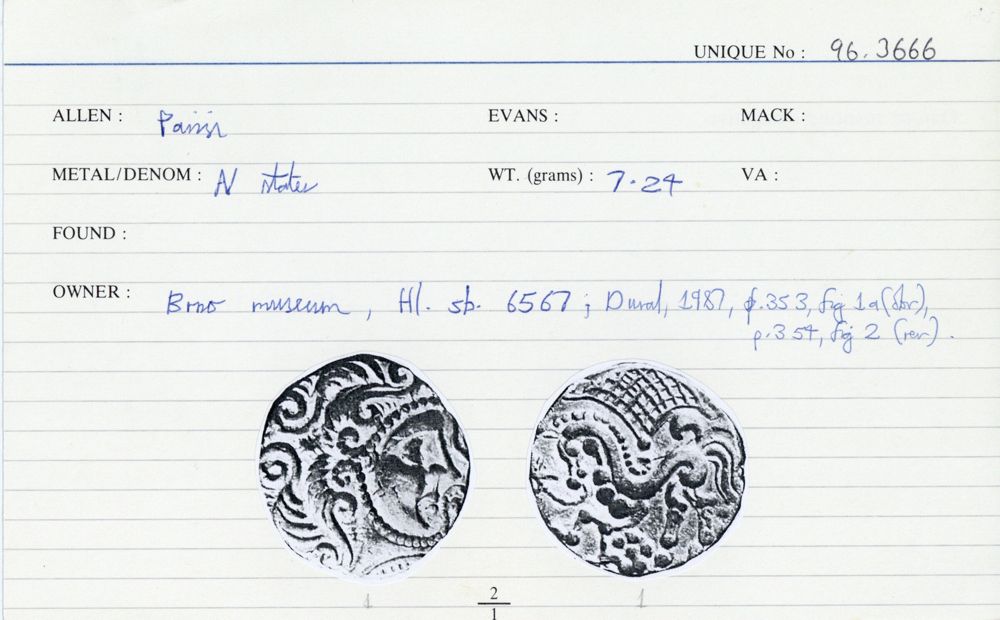 UNIQUE No : 96.3666
ALLEN : Parisi EVANS : MACK :
METAL/DENOM : N stater WT. (grams) : 7.24 VA :
FOUND :
OWNER : Brno museum, Hl. sb. 6567; Duval, 1987, p.353, fig 1a (obv),
p.354, fig 2 (rev).
1 2 1
1